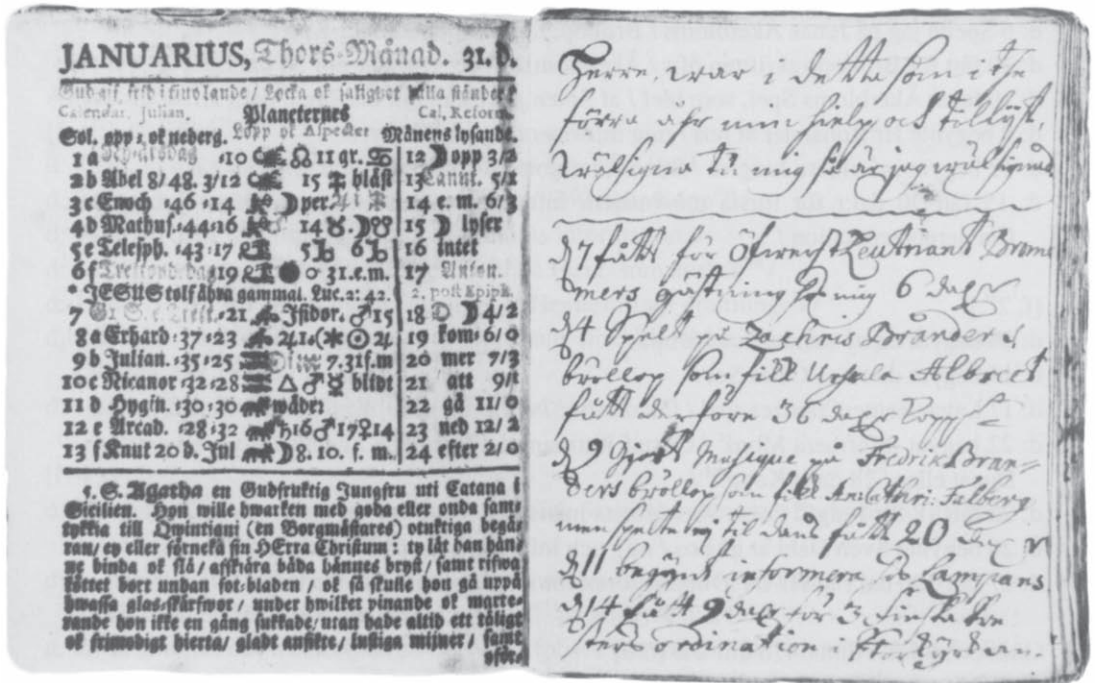 JANUARIUS, Thors-Månad. 31. D.
Calendar. Julian. Planeternes Cal. Reform
Sol. opp ok nederg. Lopp ok Aspecter Månens lysande.
1 a 10 ☊ 11 gr. 12 ☽ opp 3/2
2 b Abel 8/48. 3/12 15 blåst 13 5/1
3 c Enoch :46 :14 ☽ per. 14 e. m. 6/3
4 d Mathus. :44 :16 14 ☿. ☽ 15 ☽ lyser
5 e Telesph. :43 :17 5 ♄ 6 ♄ 16 intet
6 f Trettondedag :19 31. e. m. 17 Anton.
* JESUS tolf åhra gammal. Luc. 2: 42. 2. post Epiph.
7 :21 Isidor. ♂ 15 18 ☽ 4/2
8 a Erhard :37 :23 ♃ 14 19 kom: 6/0
9 b Julian. :35 :25 7. 31 f. m 20 mer 7/3
10 c Nicanor :32 :28 △ ♂ ☿ blidt 21 att 9/1
11 d Hygin. :30 :30 wäder: 22 gå 11/0
12 e Arcad. :28 :32 ♄ 16 ♂ 17 ♀ 14 23 ned 12/2
13 f Knut 20 d. Jul ☽ 8. 10. f. m. 24 efter 2/0
1. S. Agatha en Gudfruktig Jungfru uti Catana i
Sicilien. Hon wille hwarken med goda eller onda sam-
tykkia till Qwintiani (en Borgmästares) otuktiga begä-
ran/ ey eller förneka sin HErra Christum: ty lät han hän-
ne binda ok slå/ afskiära båda hännes bryst/ samt rifwa
köttet bort undan fot-bladen/ ok så skulle hon gå uppå
hwassa glas-skärfwor/ under hwilket pinande ok marte-
rande hon ikke en gång sukkade/ utan hade altid ett roligt
ok frimodigt hierta/ gladt ansikte/ lustiga miner/ samt
Herre, war i detta som i the
förra åhr min hielp och tillflyckt,
wälsigna tu mig så är jag wälsignad
d 7 fått för Öfwerst Leutnant Bräm
mers gästning hos mig 6 daler
d 4 Spelt på Zachris Branders
bröllop som fick Ursula Albrecht
fått der före 36 daler Kopp
d 9 Giort Musique på Fredrik Bran=
ders bröllop som fick Falberg
men spelte ej til dans fått 20 daler
d 11 begynt informera hos Lampans
d 14 fått 9 daler för 3 finska
sters ordination i Storkyrkan.